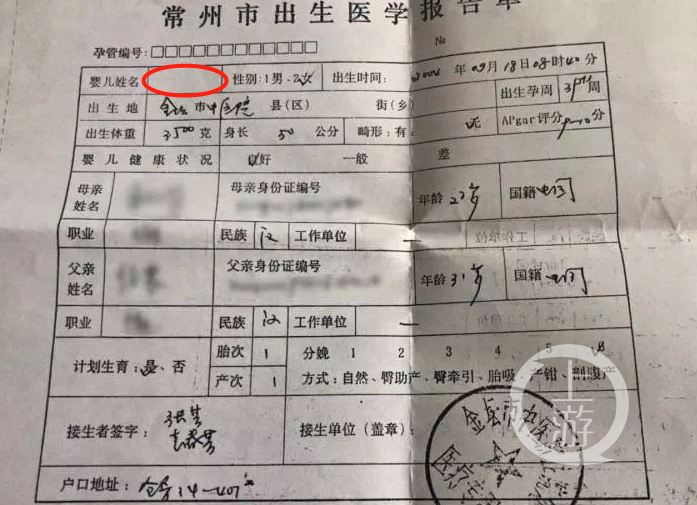 常州市出生医学报告单
孕管编号:□□□□□□□□□□□□ No
婴儿姓名 性别:1男、2女 出生时间: 2004年09月18日08时40分
出生地 金坛市中医院 县(区) 街(乡) 出生孕周 周
出生体重 3500克 身长 50 公分 畸形:有 无 APgar评分 9-10分
婴儿健康状况 好 一般 差
母亲姓名 母亲身份证编号 年龄 岁 国籍 中国
职业 民族 汉 工作单位 —
父亲姓名 父亲身份证编号 年龄 31岁 国籍 中国
职业 民族 汉 工作单位 —
计划生育:是、否 胎次 1 分娩 1 2 3 4 5 6
产次 1 方式:自然、臀助产、臀牵引、胎吸、产钳、剖腹产
接生者签字: 接生单位(盖章):
户口地址:
上游